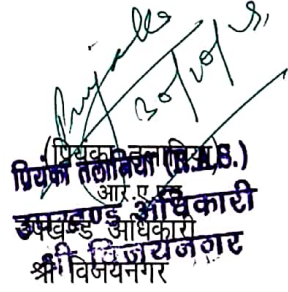 (प्रियंका तलानिया)
प्रियंका तलानिया (R.A.S.)
आर ए एस
उपखण्ड अधिकारी
उपखण्ड अधिकारी
श्री विजयनगर
श्री विजयनगर